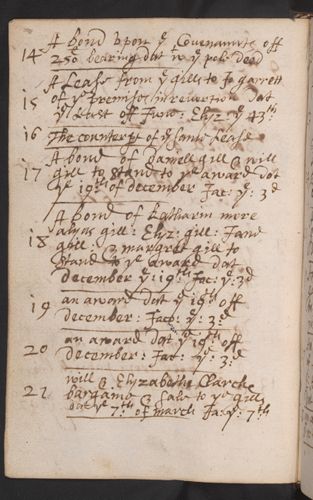 14 A bond upon ye Covenants off
250 bearing dat wth ye pole deed
A Lease from ye gills to Jo garrett
15 of ye premises in revertion dat
ye last of June: Elyz: ye 43th
16 The counterpt of ye same Lease
A bond of daniell gill & will
17 gill to stand to ye award dat
ye 19th of december Jac: ye: 3d
A bond of Katharin more
alias gill: Elyz: gill: Jane
18 gill: & margret gill to
stand to ye award dat
december ye: 19th: Jac: ye: 3d
19 an award dat ye 19th off
december: Jaco: ye: 3d
an award dat ye 19th off
20 december: Jac: ye: 3d
will & Elyzabeth Clarck
21 bargane & Sale to ye gills
dat ye 7th of march Ja: ye: 7th